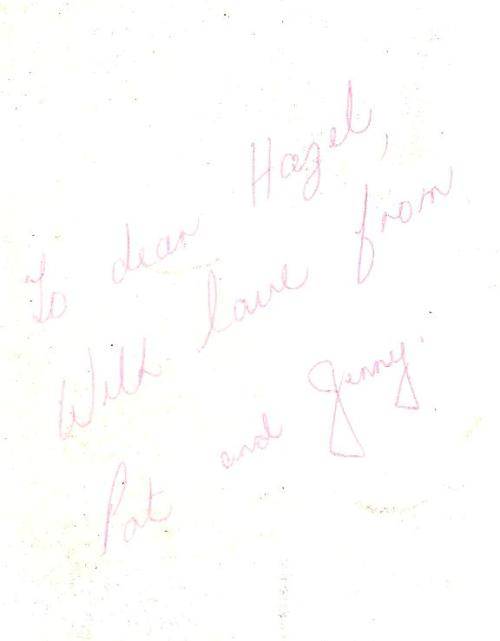 To dear Hazel,
With love from
Pat and Jenny.